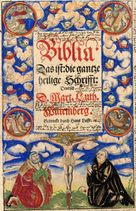 Biblia
Das ist: die gantze
heilige Schrifft:
Deudsch
D. Mart. Luth.
Wittemberg.
Gedruckt durch Hans Lufft.